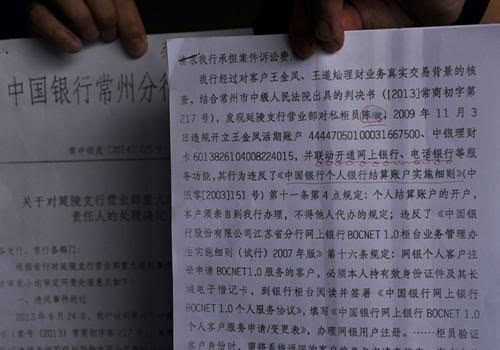 中国银行常州分行
常中银发[2014]
关于对延陵支行营业部重大
责任人的处理决定
各支行、市行各部门：
一、违规事件经过
求我行承担案件诉讼费
我行经过对客户王金凤、王道灿理财业务真实交易背景的核
查，结合常州市中级人民法院出具的判决书（[2013]常商初字第
217号），发现延陵支行营业部对私柜员陈 ，2009年11月3
日违规开立王金凤活期账户 4444705010003166​7500、中银理财
卡6013826104008224015，并联动开通网上银行、电话银行等服
务功能，其行为违反了《中国银行个人银行结算账户实施细则》（中
银零[2003]151号）第十一条第4点规定：个人结算账户的开户，
客户须亲自到我行办理，不得他人代办的规定；违反了《中国银
行股份有限公司江苏省分行网上银行BOCNET1.0柜台业务管理办
法实施细则（试行）2007年版》第十六条规定：网银个人客户注
册申请BOCNET1.0服务的客户，必须本人持有效身份证件及其长
城电子借记卡，到银行柜台阅读并签署《中国银行网上银行
BOCNET1.0个人服务协议》，填写《中国银行网上银行BOCNET1.0
个人客户服务申请/变更表》，办理网银用户注册。……柜员验证
客户身份时，需将系统返回的客户